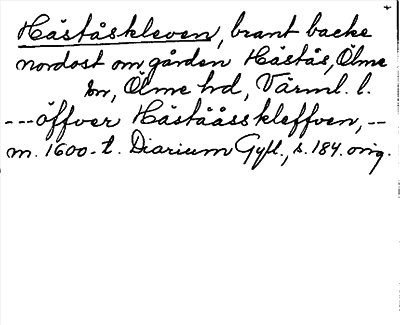 Håståskleven, brant backe
nordost om gården Håstås, Ölme
sn, Ölme hd, Värml. l.
---öffver Håstååsskleffven,--
m. 1600-t. Diarium Gyll., s. 184. orig.